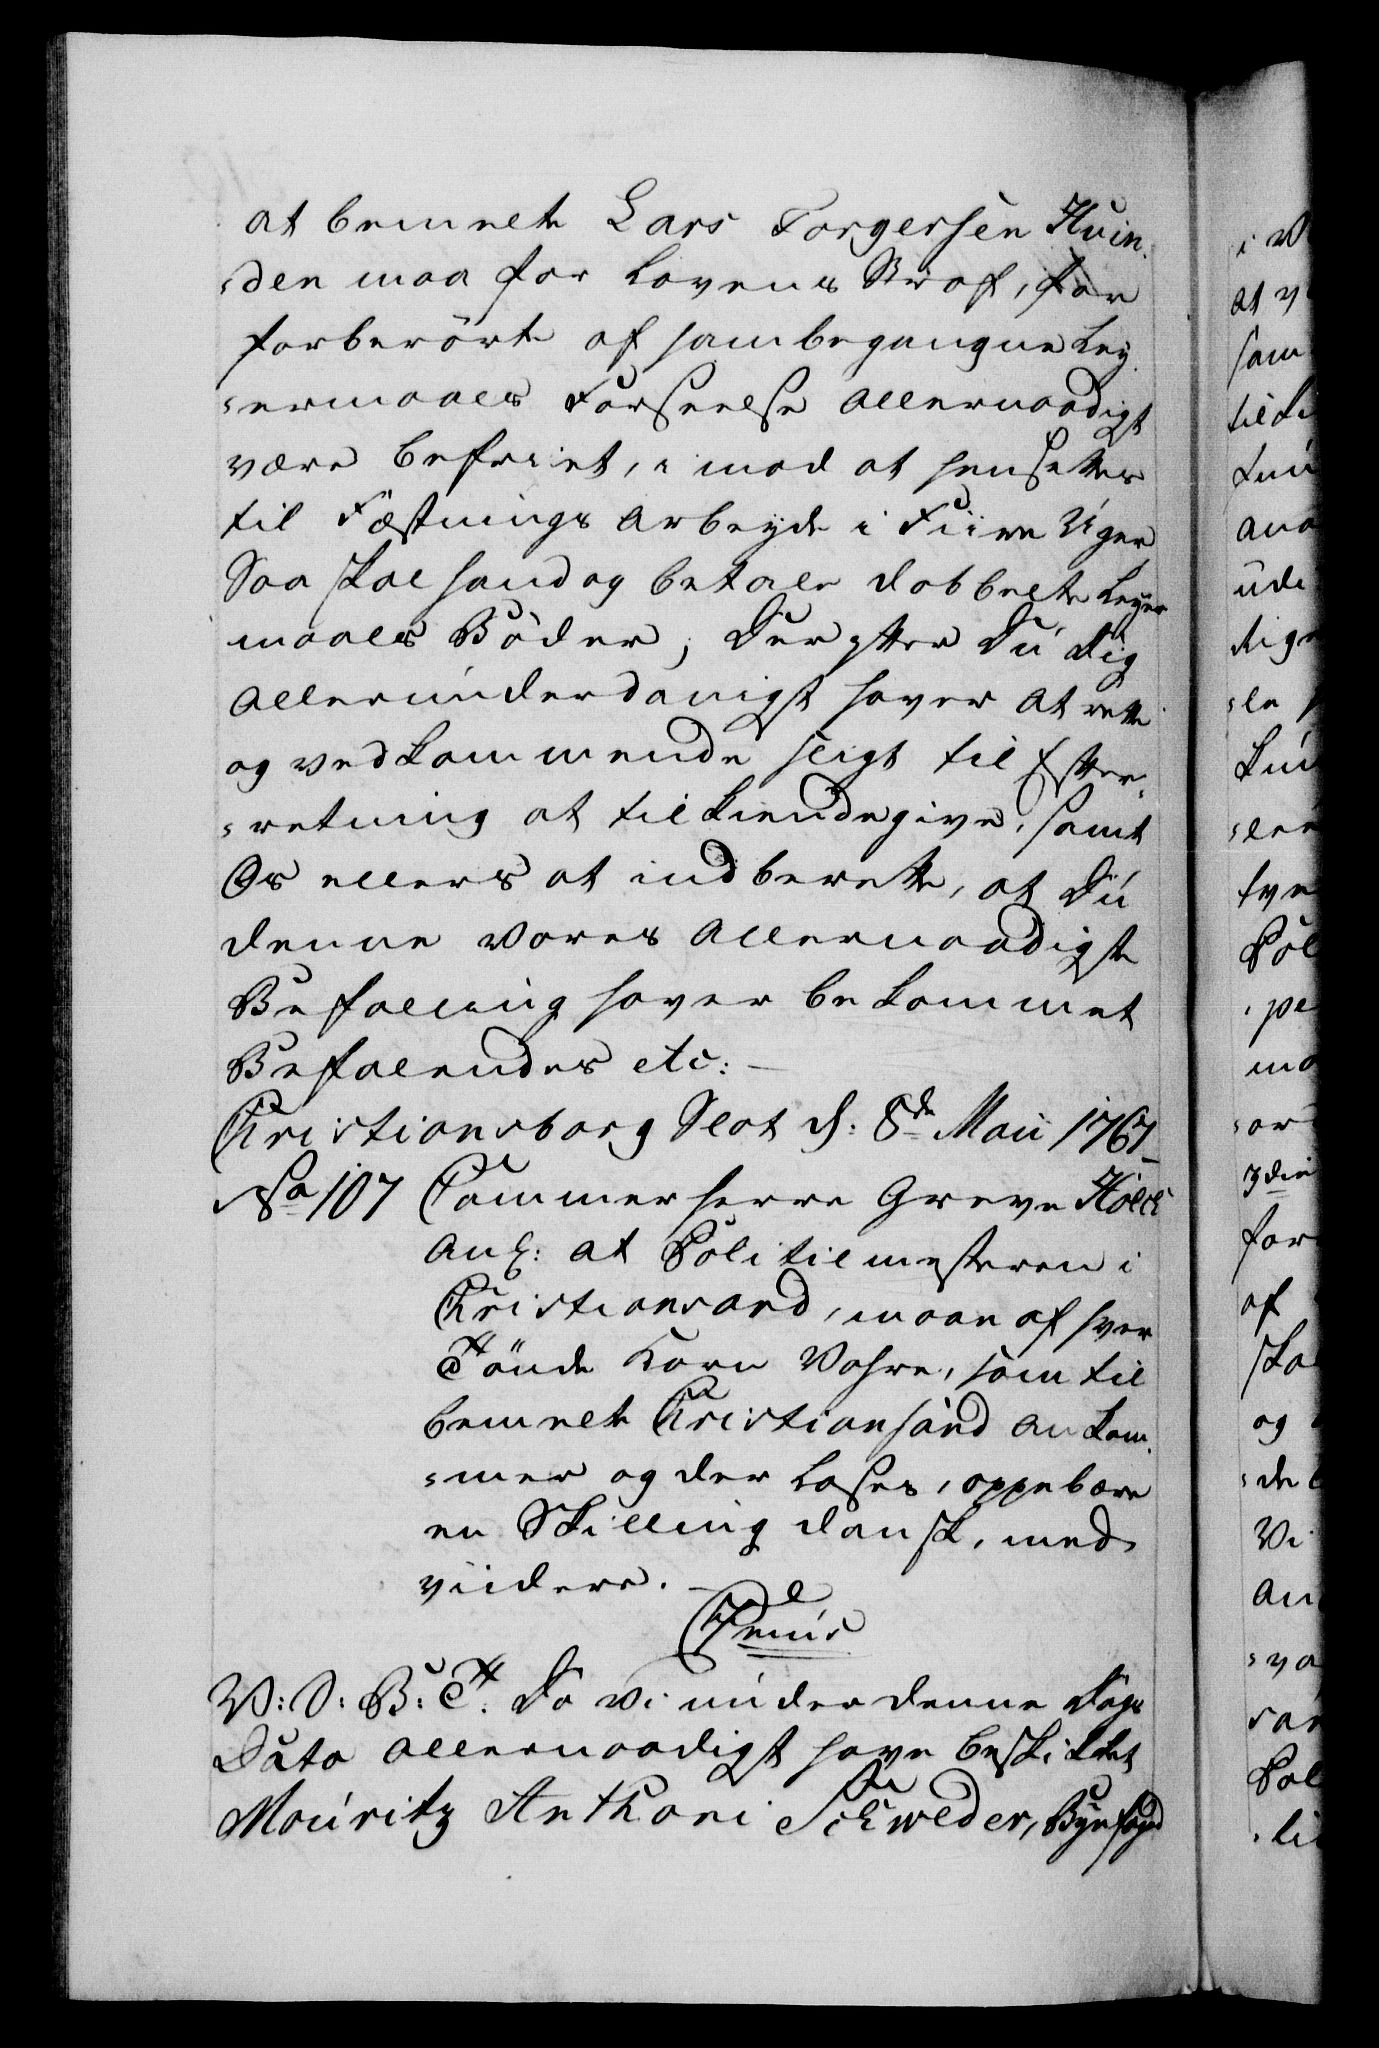 at bemelte Lars Torgersen Huin¬
¬den maa for Lovens Straf, for
forberörte af ham begangne Ley¬
¬ermaals Forseelse allernaadigst
være befriet, imod at hensettes
til Fæstnings Arbeyde i Fiire Uger
Saa skal hand og betale dobbelte Leyer
maals Böder; Derefter Du dig
allerunderdanigst haver at rette
og vedkommende sligt til Efter¬
¬retning at tilkiendegive, samt
Os ellers at indberette, at Du
denne Vores allernaadigste
Befaling haver bekommet
Befalendes etc:
Christiansborg Slot d: 8de Maii 1767
No 107 Cammerherre Greve Holck
anl: at Politiemesteren i
Christiansand, maae af hver
Tönde Korn Vahre, som til
bemelte Christiansand ankom¬
¬mer og der losses, oppebære
en Skilling dansk, med
viidere.
V: S: B: T. Da Vi under denne Dags
Dato allernaadigst have beskikket
Mouritz Anthoni Schweder, Byefoged
i V
at v